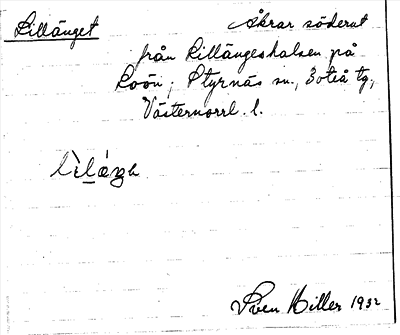 Lillänget
Åkrar söderut
från Lillängeshalsen på
Loön, Styrnäs sn., Boteå tg,
Västernorrl. l.
Sven Hiller 1932